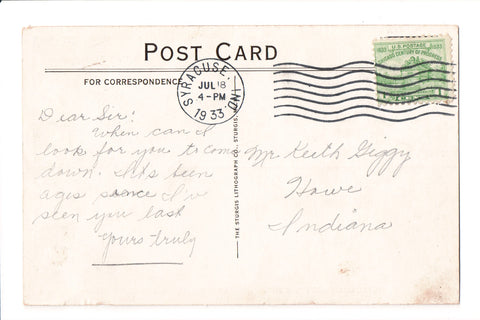 POST CARD
FOR CORRESPONDENCE
SYRACUSE IND.
JUL 18
4-PM
1933
U.S. POSTAGE
1833 1933
CHICAGO CENTURY OF PROGRESS
Dear Sir!
When can I
look for you to come
down. It's been
ages since I've
seen you last
Yours truly
THE STURGIS LITHOGRAPH CO. STURGIS,
Mr. Keith Giggy
Howe
Indiana